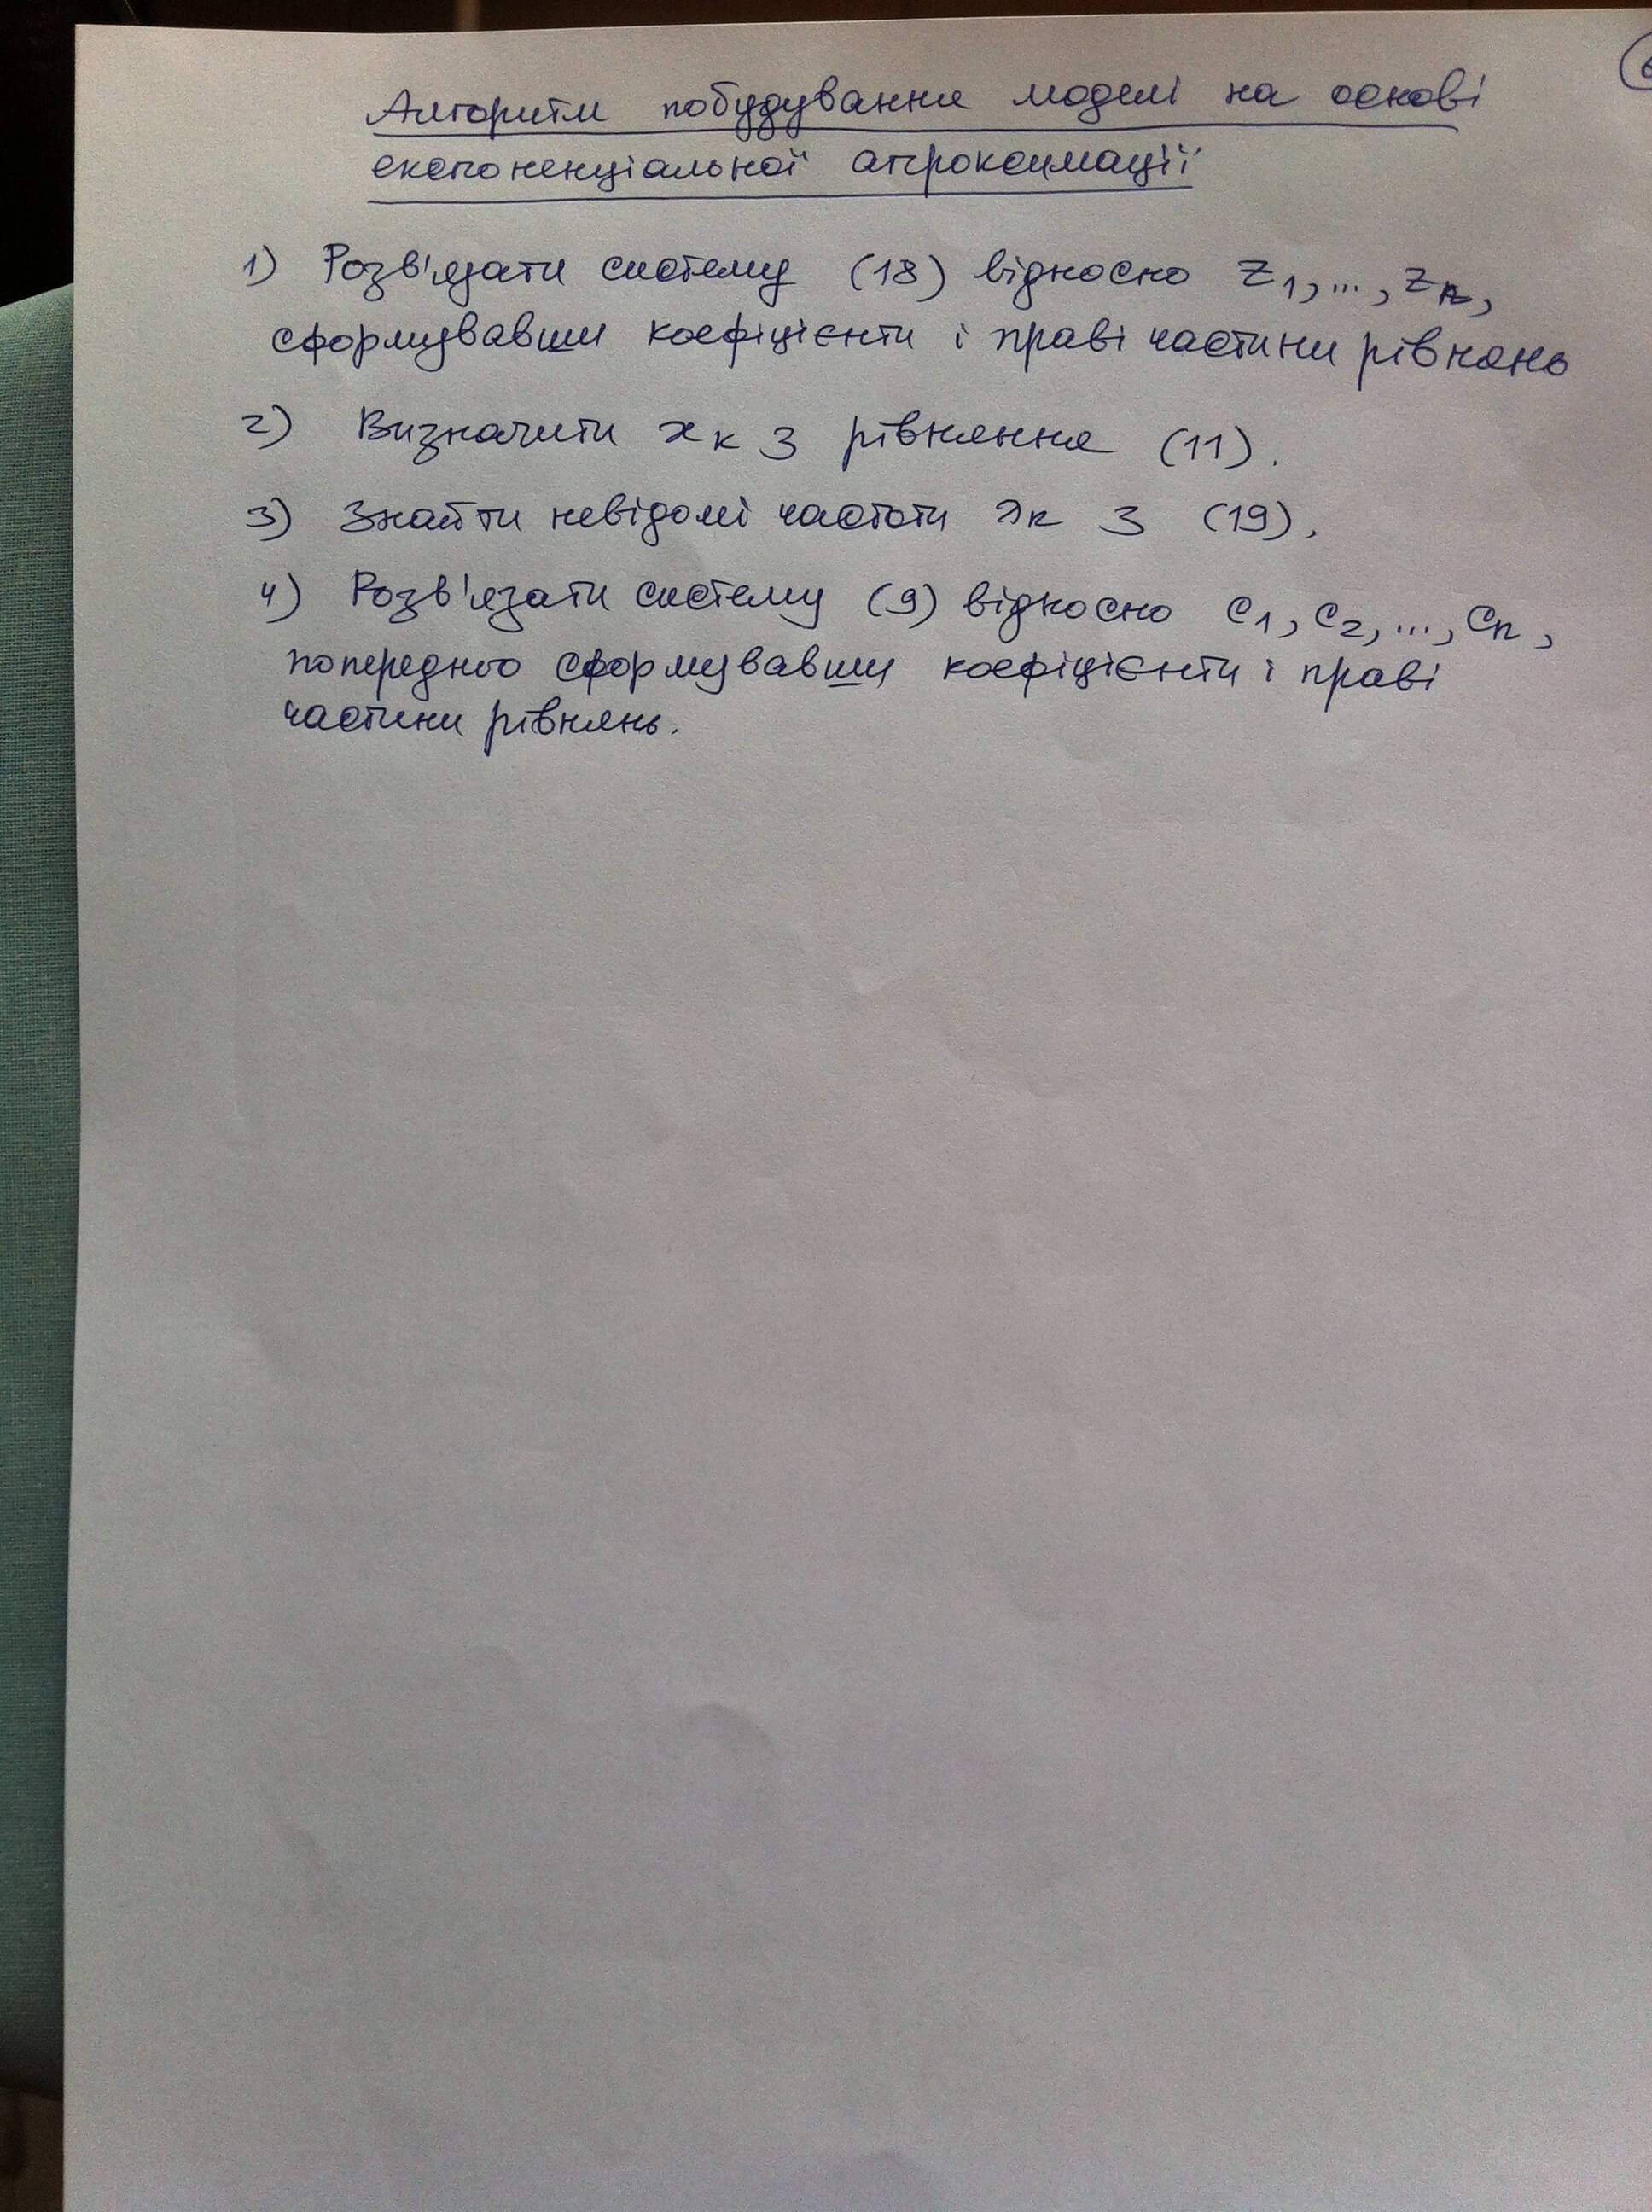 Алгоритм побудування моделі на основі
експоненціальної апроксимації
1) Розв'язати систему (18) відносно z₁, ..., zₙ,
сформувавши коефіцієнти і праві частини рівнянь
2) Визначити xₖ з рівняння (11).
3) Знайти невідомі частоти λₖ з (19).
4) Розв'язати систему (9) відносно c₁, c₂, ..., cₙ,
попередньо сформувавши коефіцієнти і праві
частини рівнянь.